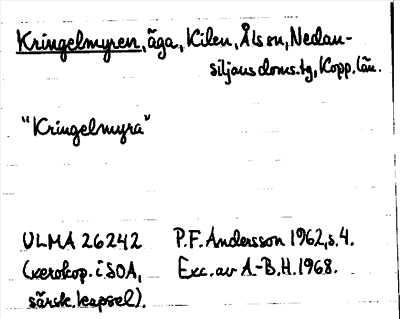 Kringelmyren, äga, Kilen, Åls sn, Nedan-
siljans doms.tg, Kopp. län.
"Kringelmyra"
ULMA 26242 P.F. Andersson 1962, s. 4.
(xerokop. i SOA, Exc. av A.-B.H. 1968.
särsk. kapsel).